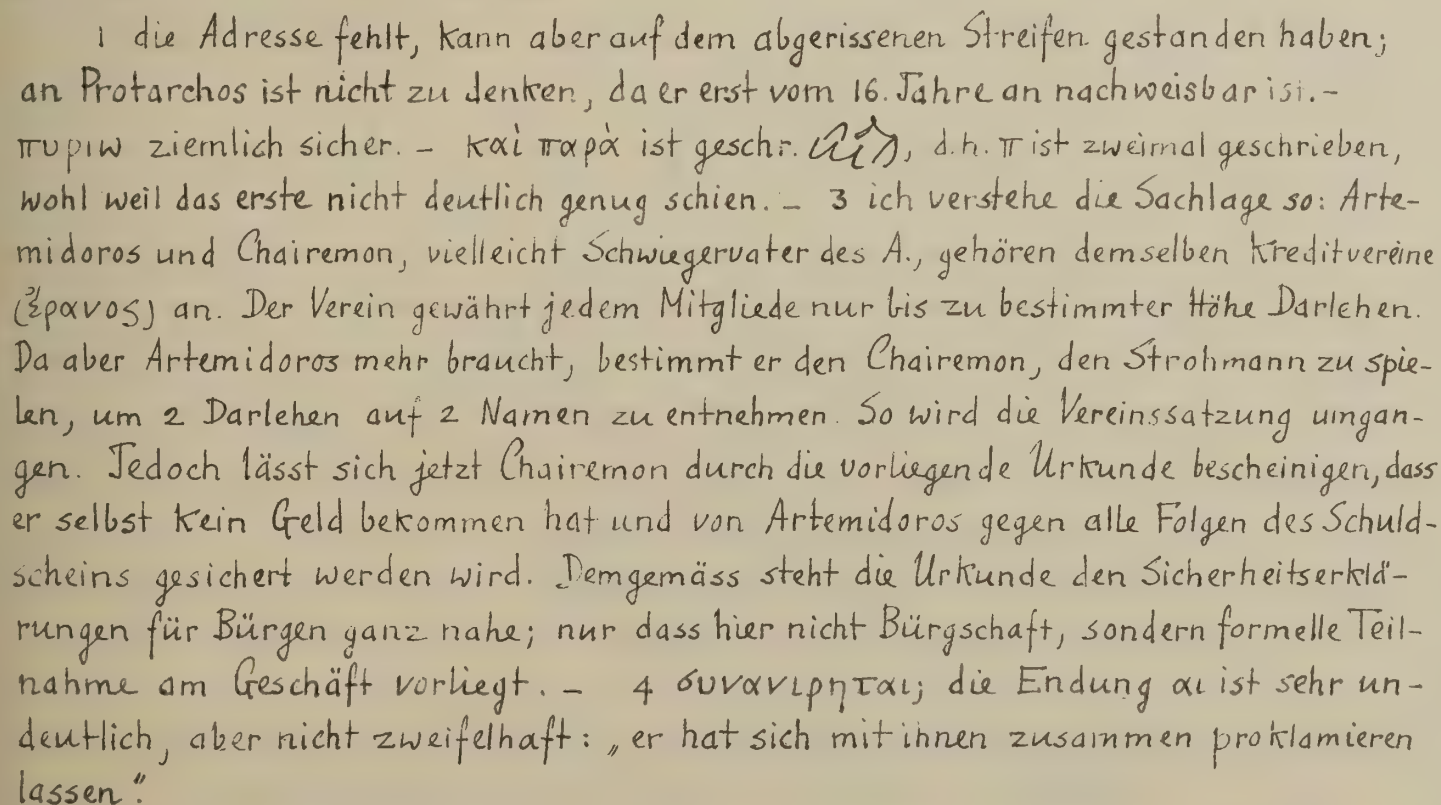 1 die Adresse fehlt, kann aber auf dem abgerissenen Streifen gestanden haben;
an Protarchos ist nicht zu denken, da er erst vom 16. Jahre an nachweisbar ist.–
πυριω ziemlich sicher. – καὶ παρὰ ist geschr. , d.h. π ist zweimal geschrieben,
wohl weil das erste nicht deutlich genug schien. – 3 ich verstehe die Sachlage so: Arte-
midoros und Chairemon, vielleicht Schwiegervater des A., gehören demselben Kreditvereine
(ἔρανος) an. Der Verein gewährt jedem Mitgliede nur bis zu bestimmter Höhe Darlehen.
Da aber Artemidoros mehr braucht, bestimmt er den Chairemon, den Strohmann zu spie-
len, um 2 Darlehen auf 2 Namen zu entnehmen. So wird die Vereinssatzung umgan-
gen. Jedoch lässt sich jetzt Chairemon durch die vorliegende Urkunde bescheinigen, dass
er selbst kein Geld bekommen hat und von Artemidoros gegen alle Folgen des Schuld-
scheins gesichert werden wird. Demgemäss steht die Urkunde den Sicherheitserklä-
rungen für Bürgen ganz nahe; nur dass hier nicht Bürgschaft, sondern formelle Teil-
nahme am Geschäft vorliegt. – 4 συνανιρηται; die Endung αι ist sehr un-
deutlich, aber nicht zweifelhaft: „er hat sich mit ihnen zusammen proklamieren
lassen“.